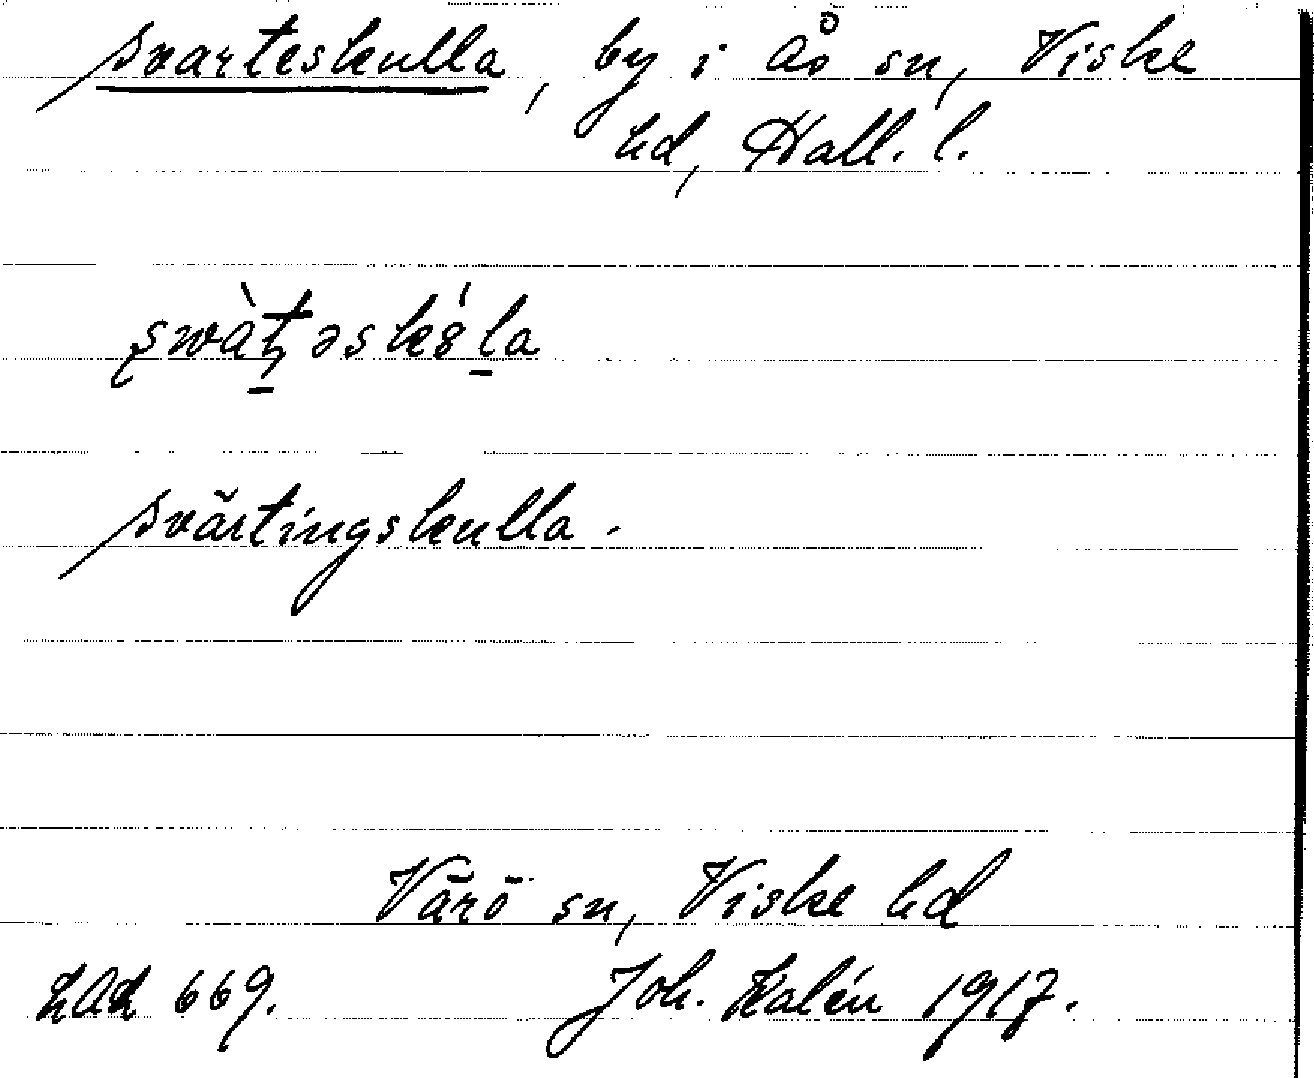 Svarteskulla, by i Ås sn, Viske
hd, Hall. l.
Svärtingskulla.
Värö sn, Viske hd
669. Joh. Kalén 1917.